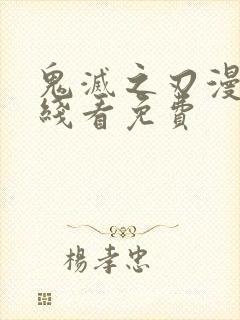 鬼滅之刃漫
綫看免費
楊孝忠